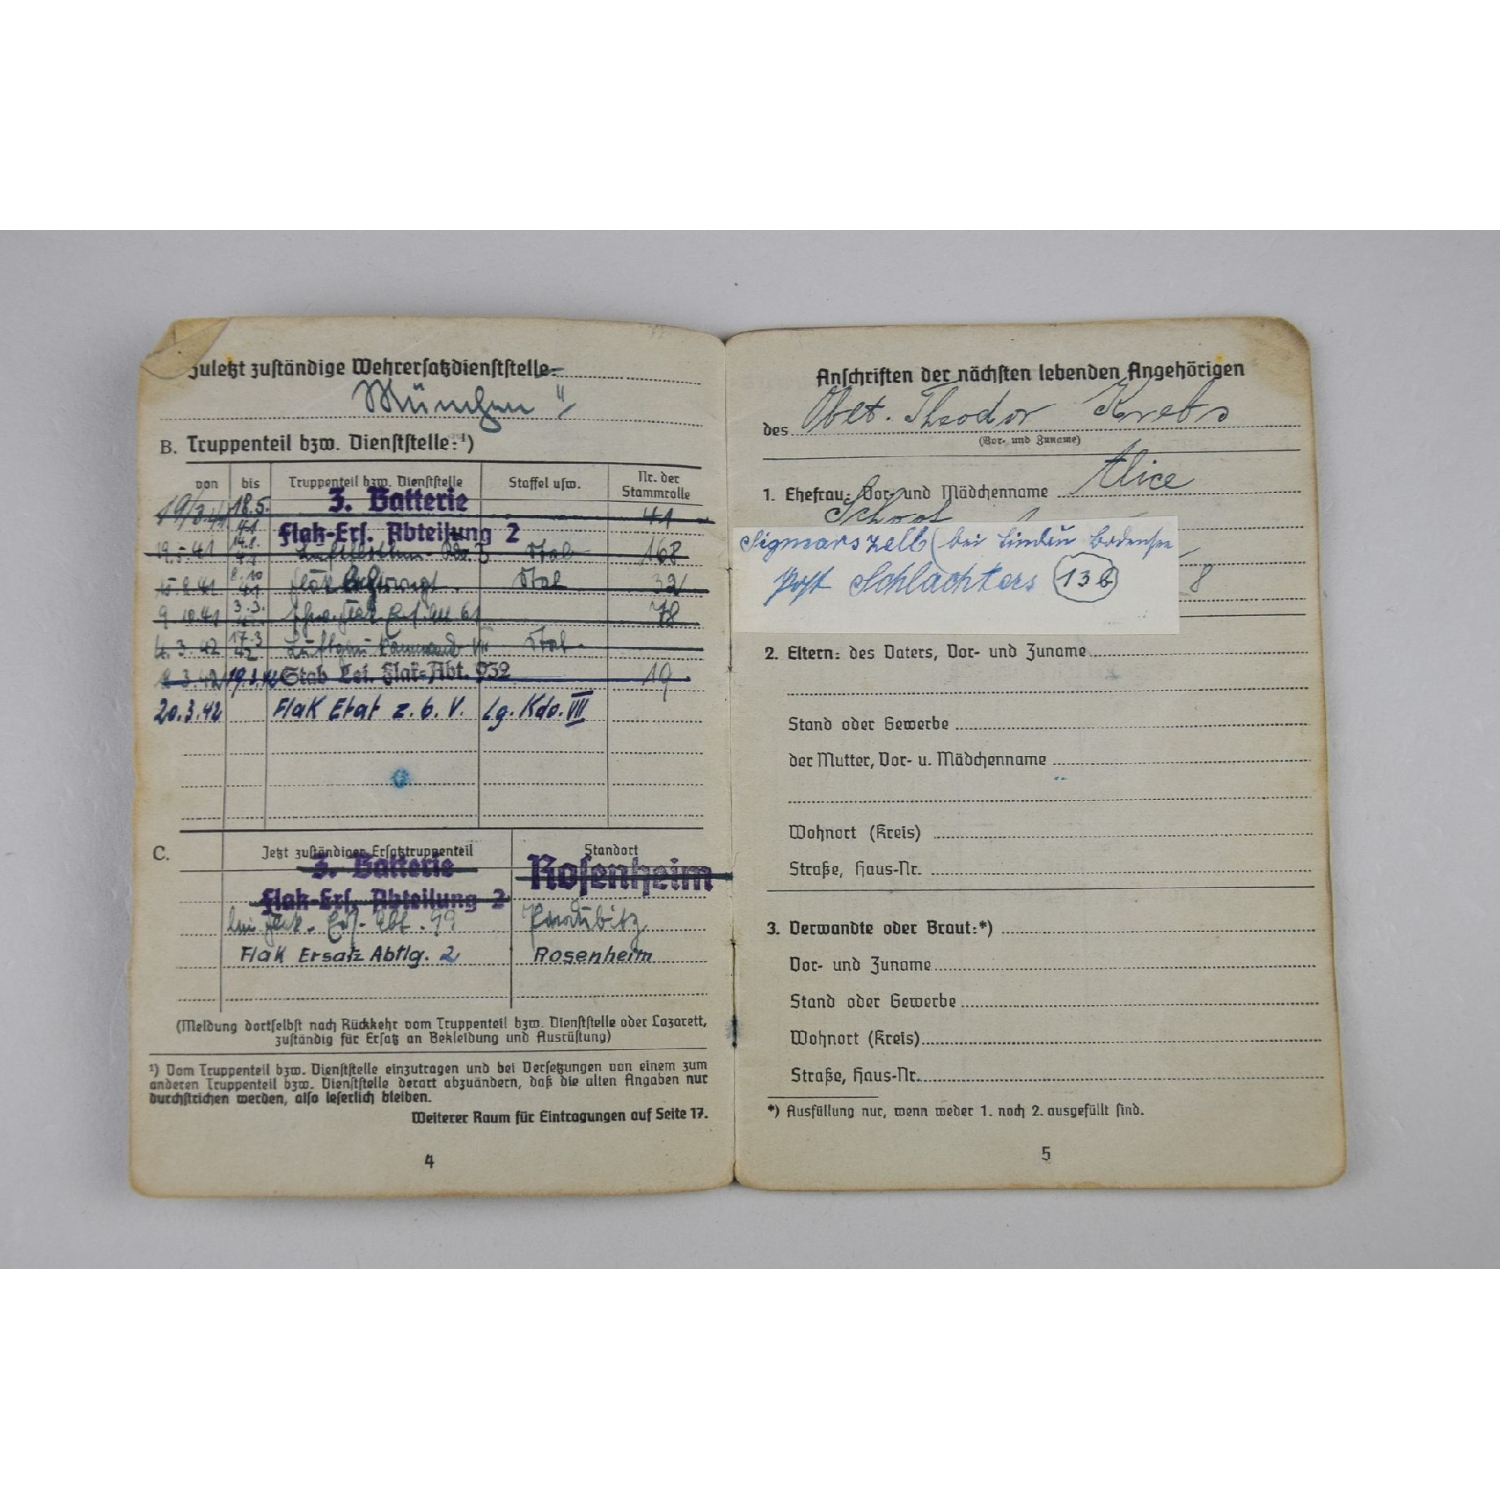 Zuletzt zuständige Wehrersatzdienststelle:
München II
B. Truppenteil bzw. Dienststelle:¹)
von bis Truppenteil bzw. Dienststelle Staffel usw. Nr. der Stammrolle
18.5. 3. Batterie
41 Flak-Ers. Abteilung 2 41
Stab 168
Stab 32
9.10.41 3.3. 78
17.3. 42 Luftgau Kommando VII Stab
19.3.42 Stab Lei. Flak-Abt. 932 19
20.3.42 Flak Etat z. b. V. Lg. Kdo. VII
C. Jetzt zuständiger Ersatztruppenteil Standort
3. Batterie Rosenheim
Flak-Ers. Abteilung 2
Ers. Abt.
Flak Ersatz Abtlg. 2 Rosenheim
(Meldung dortselbst nach Rückkehr vom Truppenteil bzw. Dienststelle oder Lazarett,
zuständig für Ersatz an Bekleidung und Ausrüstung)
¹) Vom Truppenteil bzw. Dienststelle einzutragen und bei Versetzungen von einem zum
anderen Truppenteil bzw. Dienststelle derart abzuändern, daß die alten Angaben nur
durchstrichen werden, also leserlich bleiben.
Weiterer Raum für Eintragungen auf Seite 17.
4
Anschriften der nächsten lebenden Angehörigen
des Oblt. Theodor Krebs
(Vor- und Zuname)
1. Ehefrau: Vor- und Mädchenname Alice
Sigmarszell (bei Lindau Bodensee
Post Schlachters (13b) 8
2. Eltern: des Vaters, Vor- und Zuname
Stand oder Gewerbe
der Mutter, Vor- u. Mädchenname
Wohnort (Kreis)
Straße, Haus-Nr.
3. Verwandte oder Braut:*)
Vor- und Zuname
Stand oder Gewerbe
Wohnort (Kreis)
Straße, Haus-Nr.
*) Ausfüllung nur, wenn weder 1. noch 2. ausgefüllt sind.
5